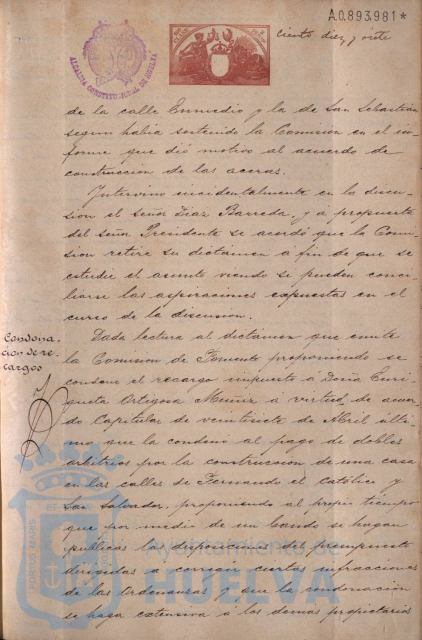 A.0.893.981*
ciento diez y siete
ALCALDIA CONSTITUCIONAL DE HUELVA
de la calle Enmedio y la de San Sebastián
segun habia sostenido la Comisión en el in-
forme que dió motivo al acuerdo de
construcción de las aceras.
Intervino incidentalmente en la discu-
sion el señor Diaz Barreda, y á propuesta
del señor Presidente se acordó que la Comi-
sion retire su dictamen á fin de que se
estudie el asunto viendo si pueden conci-
liarse las aspiraciones expuestas en el
curso de la discusion.
Condona-
cion de re-
cargos
Dada lectura al dictamen que emite
la Comision de Fomento proponiendo se
condone el recargo impuesto á Doña Enri-
queta Ortigosa Muñiz á virtud de acuer-
do Capitular de veintisiete de Abril últi-
mo que la condenó al pago de dobles
arbitrios por la construccion de una casa
en las calles de Fernando el católico y
San Salvador, proponiendo al propio tiempo
que por medio de un bando se hagan
publicas las disposiciones del presupuesto
dirigidas a corregir ciertas infracciones
de las Ordenanzas y que la condonación
se haga extensiva á los demas propietarios
PORTUS MARIS
Ayuntamiento de
HUELVA